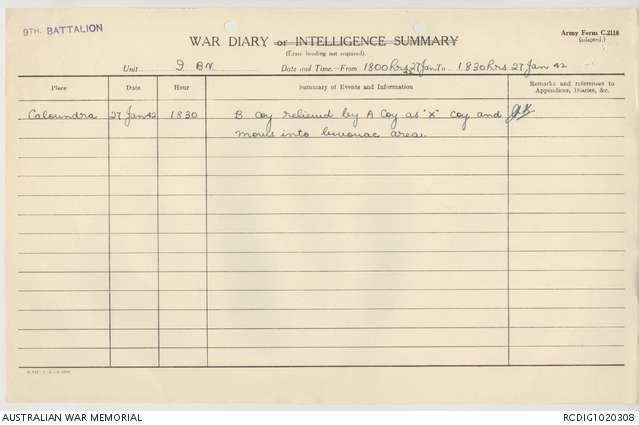 9TH. BATTALION
Army Form C.2118
(adapted.)
WAR DIARY or INTELLIGENCE SUMMARY
(Erase heading not required).
Unit 9 BN. Date and Time.—From 1800 hrs 27 Jan To 1830 hrs 27 Jan 42
Place Date Hour Summary of Events and Information Remarks and references to Appendices, Diaries, &c.
Caloundra 27 Jan 42 1830 B Coy relieved by A Coy as "X" Coy and
moves into bivouac area.
AUSTRALIAN WAR MEMORIAL RCDIG1020308